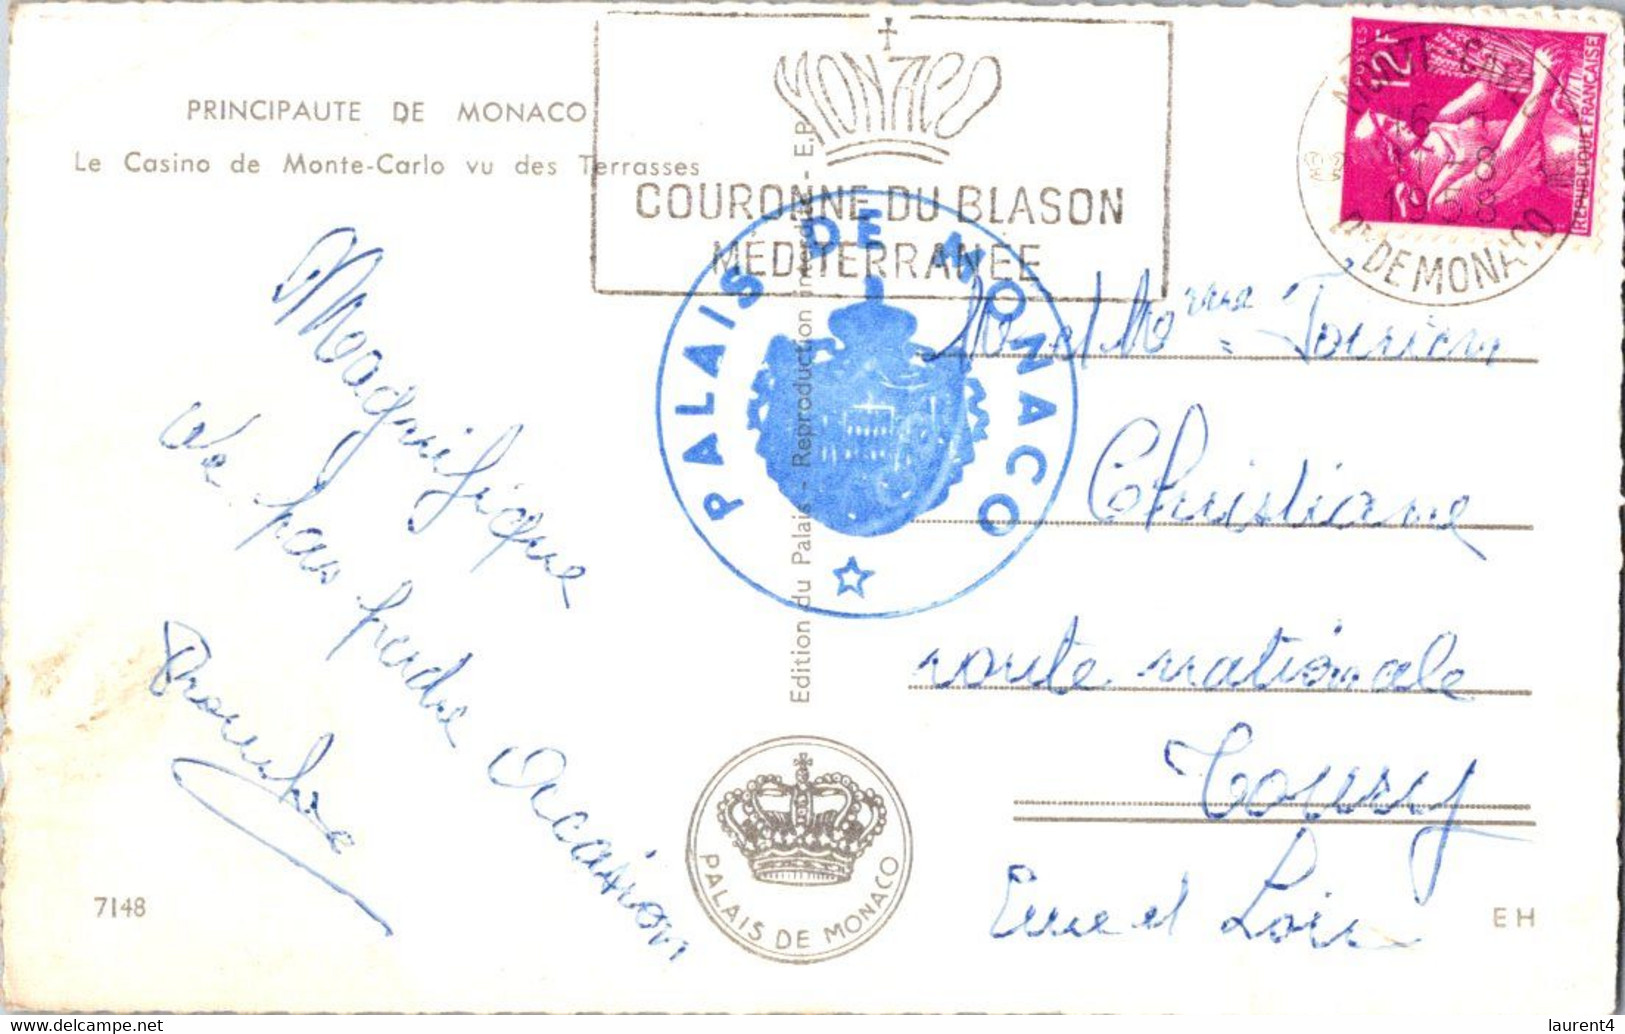 PRINCIPAUTE DE MONACO
Le Casino de Monte-Carlo vu des Terrasses
MONACO
COURONNE DU BLASON
MÉDITERRANÉE
POSTES 12F
REPUBLIQUE FRANÇAISE
MONTE-CARLO
16
11-8
1958
Pté DE MONACO
PALAIS DE MONACO
Edition du Palais - Reproduction interdite - E.P.
Magnifique
à ne pas perdre Occasion
M et Mme
Christiane
route nationale
Toury
Eure et Loir
PALAIS DE MONACO
7148
EH
laurent4